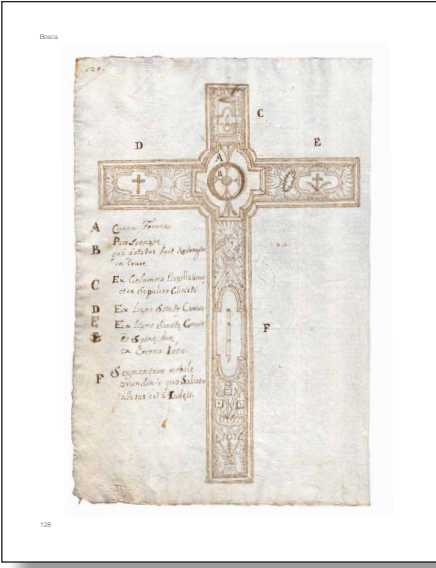 Bosca
128.
C
D
E
A
B
A Corona Ferrea
B Pars Spongiæ
qua potatus fuit Redemptor
in Cruce
C Ex Columna Flagellationis
et ex Sepulcro Christi
D Ex Ligno Sanctæ Crucis
E Ex Ligno Sanctæ Crucis
E et Spina una
ex Corona Iesu
F
F Segmentum nobile
arundinis qua Salvator
illusus est à Iudeis
128